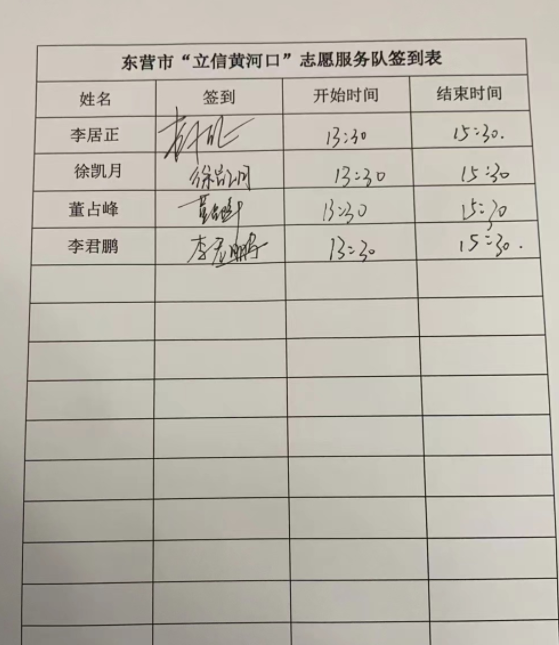 东营市“立信黄河口”志愿服务队签到表
姓名 签到 开始时间 结束时间
李居正 13:30 15:30.
徐凯月 徐凯月 13:30 15:30
董占峰 董占峰 13:30 15:30
李君鹏 李君鹏 13:30 15:30.